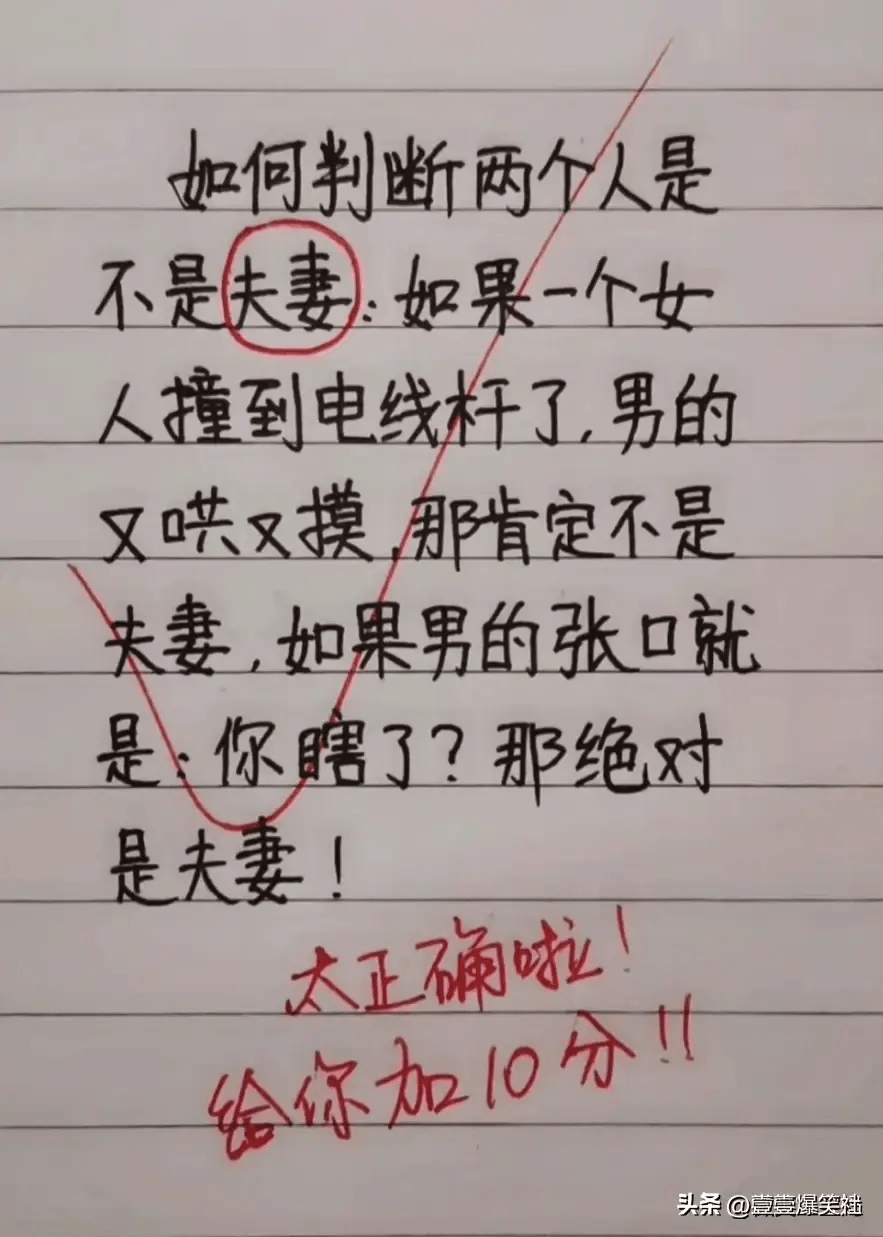 如何判断两个人是
不是夫妻:如果一个女
人撞到电线杆了,男的
又哄又摸,那肯定不是
夫妻,如果男的张口就
是:你瞎了?那绝对
是夫妻!
太正确啦!
给你加10分!!
头条 @壹壹爆笑社